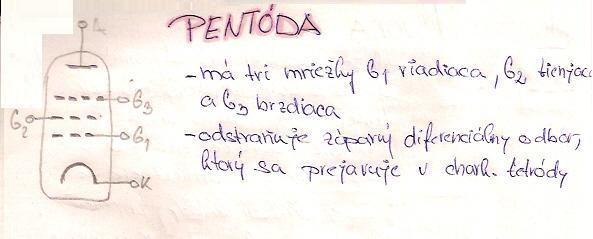 PENTÓDA
A
- má tri mriežky G1 riadiaca, G2 tieniaca
a G3 brzdiaca
- odstraňuje záporný diferenciálny odbor,
ktorý sa prejavuje v chark. tetródy
G3
G2
G1
K